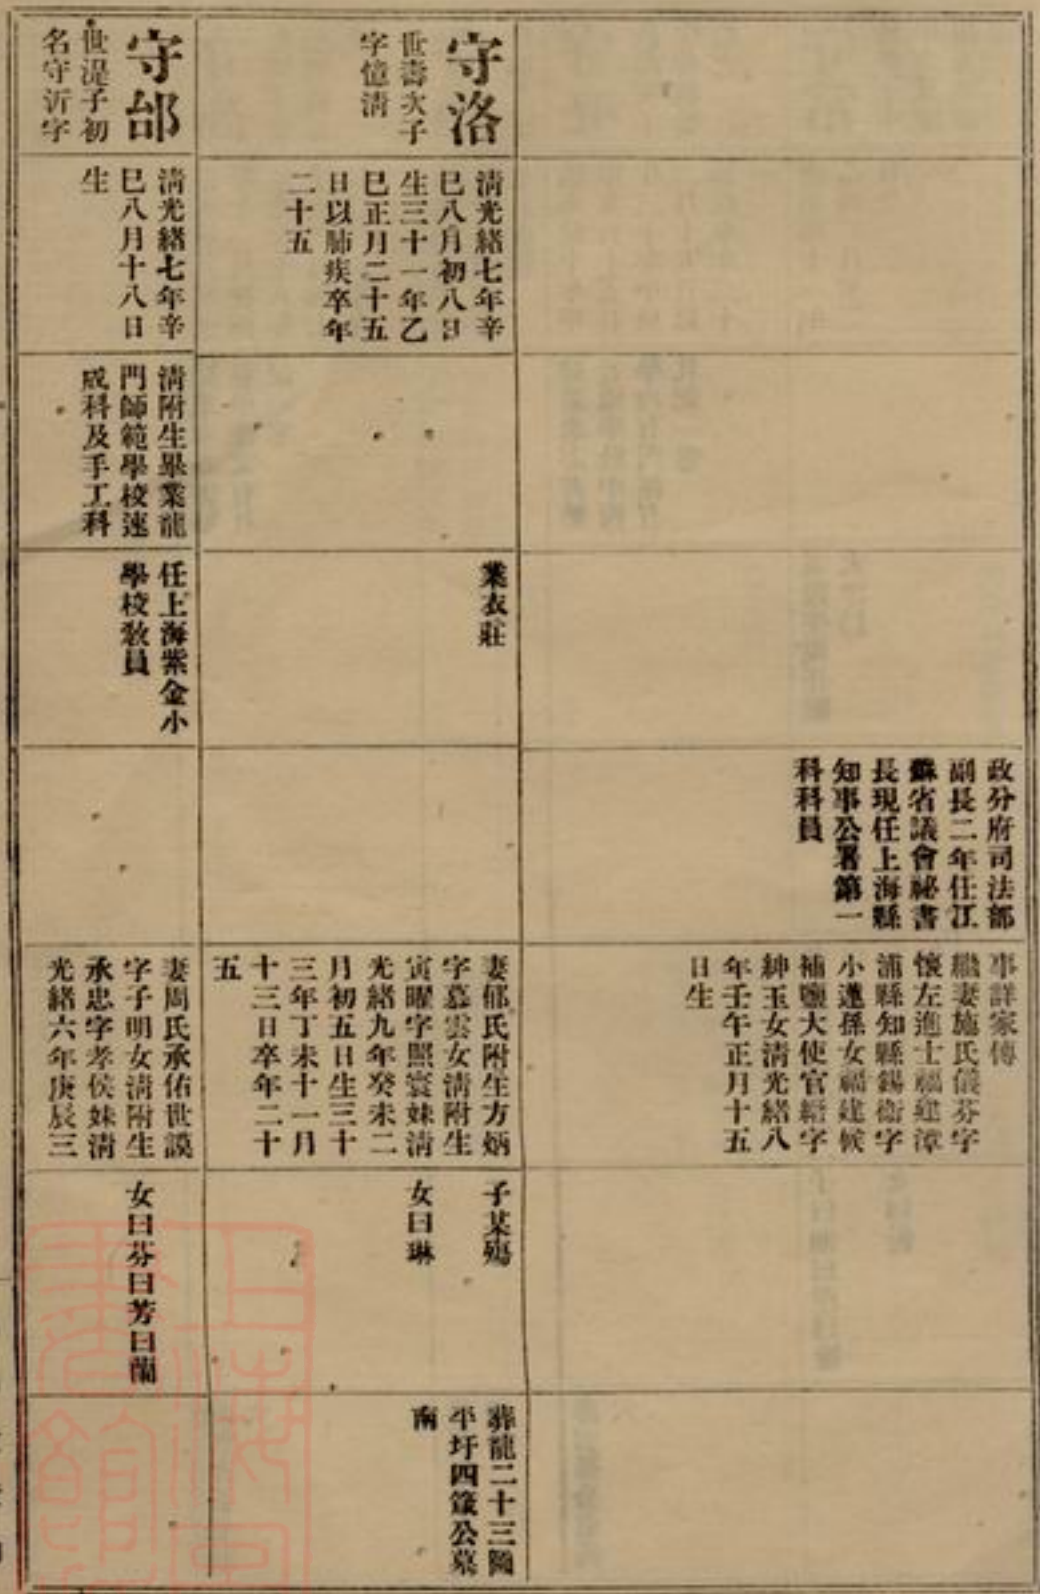 政分府司法部
副長二年任江
蘇省議會祕書
長現任上海縣
知事公署第一
科科員
事詳家傳
繼妻施氏儀芬字
懷左進士福建漳
浦縣知縣錫衞字
小蓮孫女福建候
補鹽大使官縉字
紳玉女淸光緒八
年壬午正月十五
日生
守洛
世壽次子
字憶淸
淸光緒七年辛
巳八月初八日
生三十一年乙
巳正月二十五
日以肺疾卒年
二十五
業衣莊
妻郁氏附生方炳
字慕雲女淸附生
寅曜字照寰妹淸
光緒九年癸未二
月初五日生三十
三年丁未十一月
十三日卒年二十
五
子某殤
女曰琳
葬龍二十三圖
平圩四箴公墓
南
守邰
世湜子初
名守沂字
淸光緒七年辛
巳八月十八日
生
淸附生畢業龍
門師範學校速
成科及手工科
任上海紫金小
學校敎員
妻周氏承佑世謨
字子明女淸附生
承忠字孝侯妹淸
光緒六年庚辰三
女曰芬曰芳曰蘭